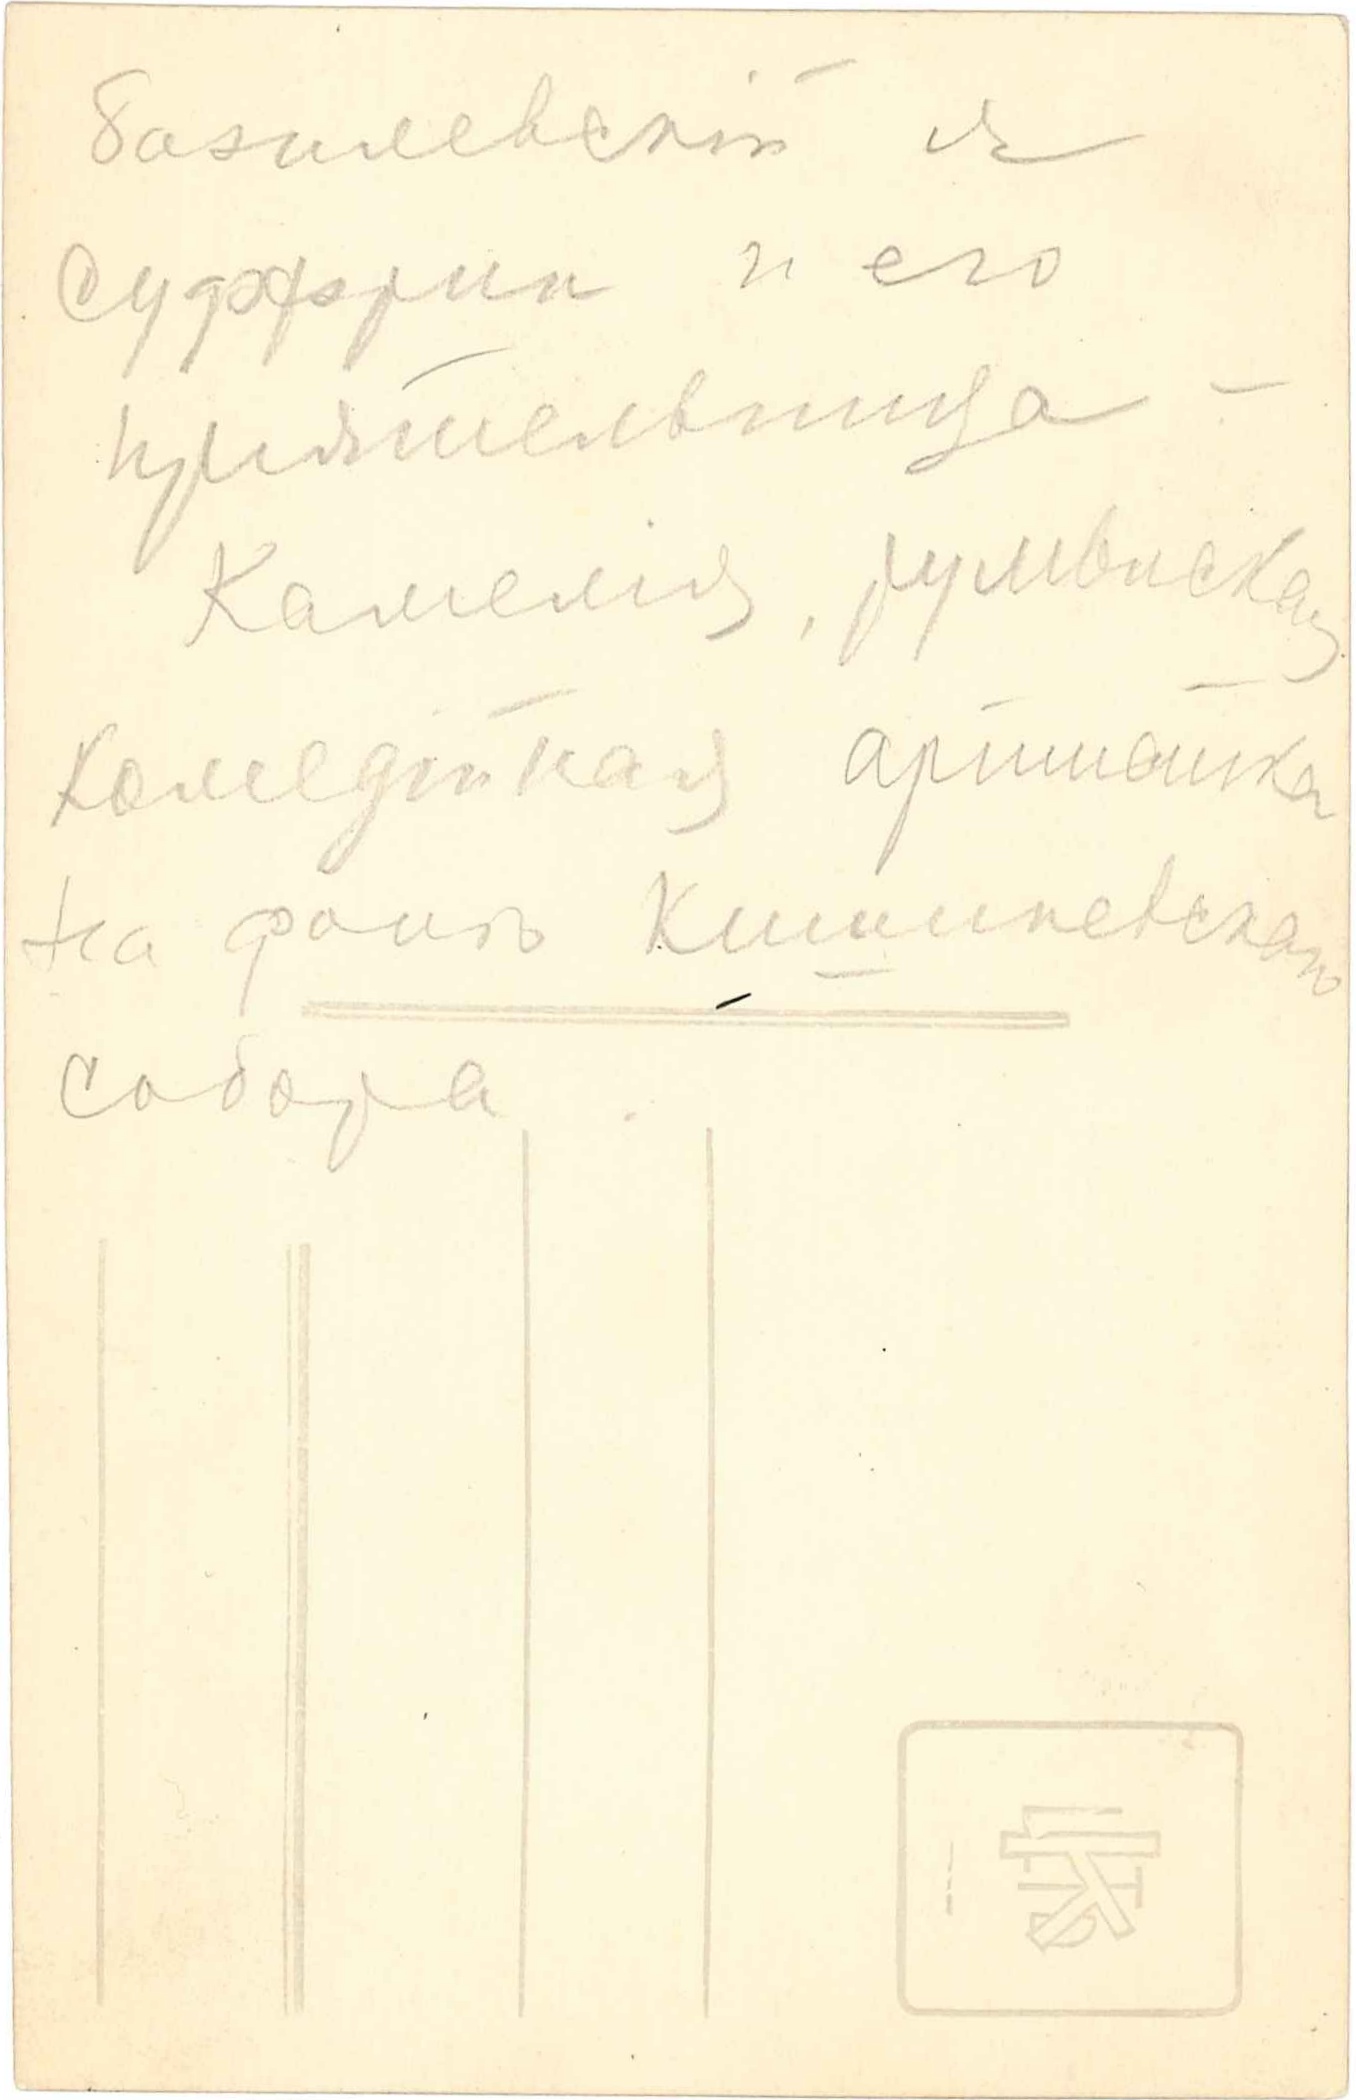 Базилевскій я
Суффрин и его
приятельница -
Камелия, румынская
комедійная артистка
на фонѣ Кишиневскаго
собора